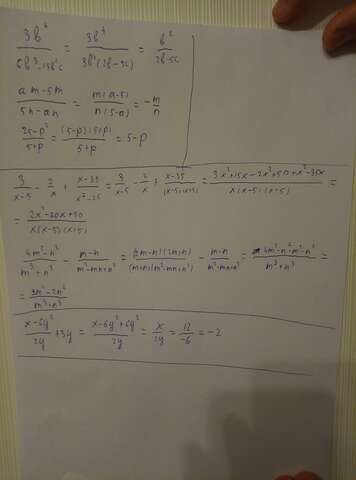 3b⁴/(6b³-15b²c) = 3b⁴/(3b²(2b-5c)) = b²/(2b-5c)
(am-5m)/(5n-an) = m(a-5)/(n(5-a)) = -m/n
(25-p²)/(5+p) = (5-p)(5+p)/(5+p) = 5-p
3/(x-5) - 2/x + (x-35)/(x²-25) = 3/(x-5) - 2/x + (x-35)/((x-5)(x+5)) = (3x²+15x-2x²+50+x²-35x)/(x(x-5)(x+5)) =
= (2x²-20x+50)/(x(x-5)(x+5))
(4m²-n²)/(m³+n³) - (m-n)/(m²-mn+n²) = (2m-n)(2m+n)/((m+n)(m²-mn+n²)) - (m-n)/(m²-mn+n²) = (4m²-n²-m²-n²)/(m³+n³) =
= (3m²-2n²)/(m³+n³)
(x-6y²)/2y + 3y = (x-6y²+6y²)/2y = x/2y = 12/-6 = -2